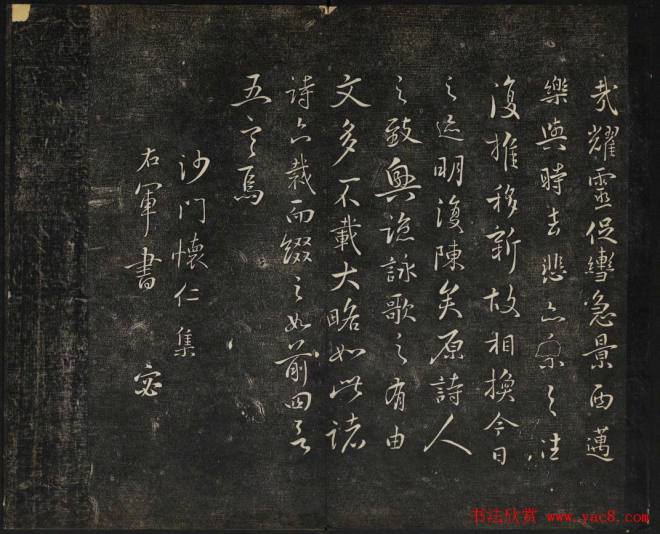 哉耀靈促轡急景西邁
樂與時去悲亦系之往
復推移新故相換今日
之迹明復陳矣原詩人
之致興諒詠歌之有由
文多不載大略如此諸
詩亦裁而綴之如前四言
五言焉
沙門懷仁集
右軍書
书法欣赏 www.yac8.com